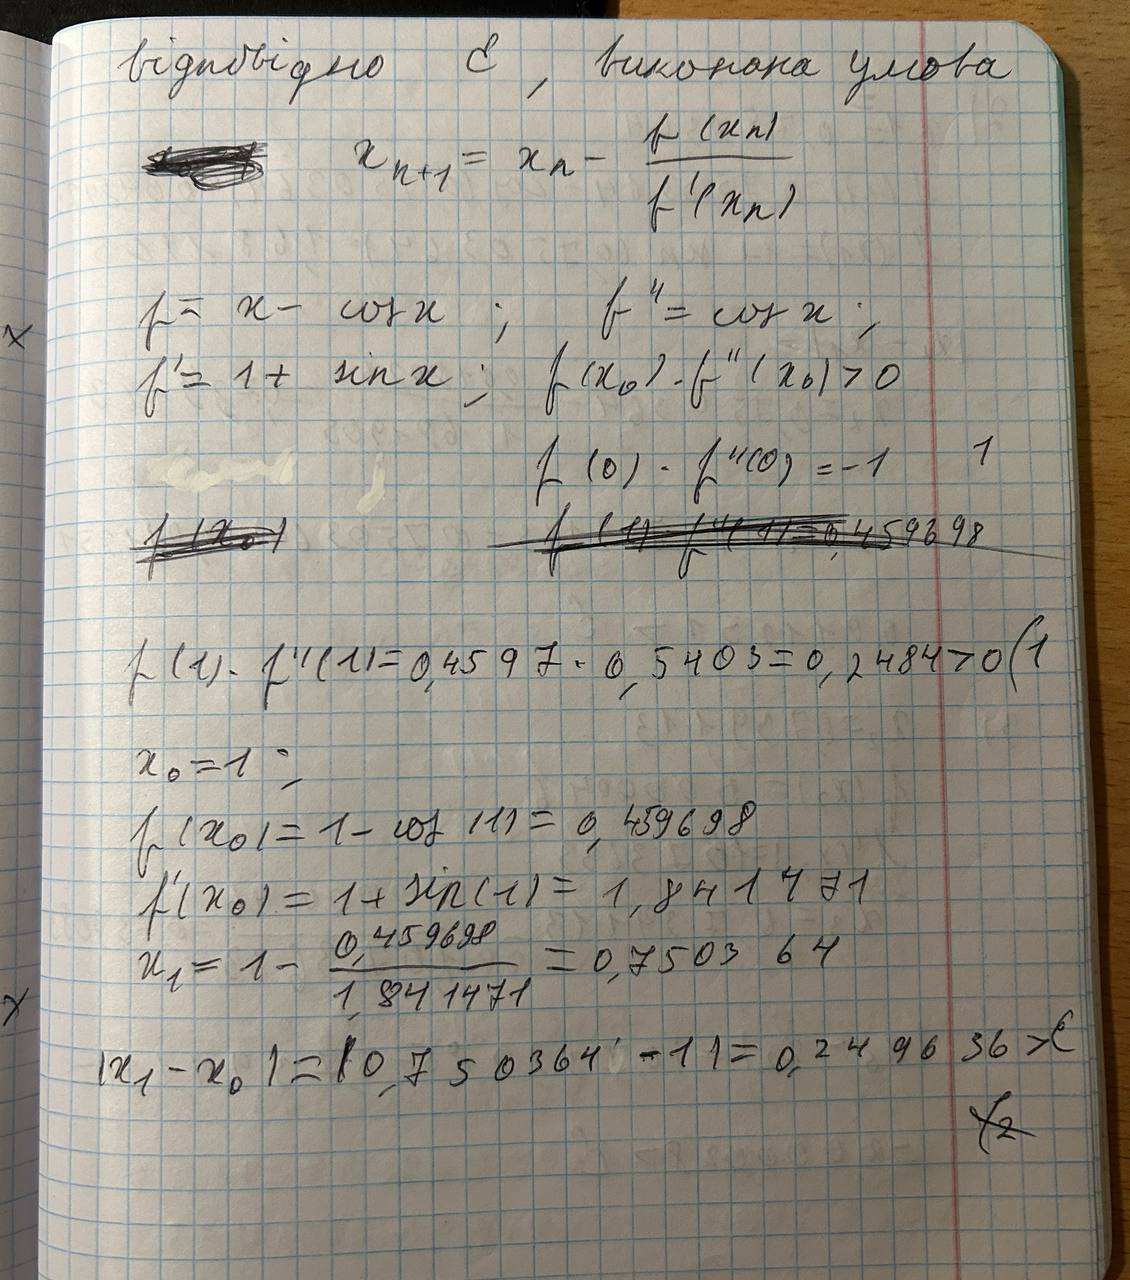 відповідно ε, виконана умова
xₙ₊₁ = xₙ - f(xₙ) / f'(xₙ)
f = x - cos x ; f'' = cos x ;
f' = 1 + sin x ; f(x₀) · f''(x₀) > 0
f(0) · f''(0) = -1 1
f(x₀)
f(1) · f''(1) = 0,459698
f(1) · f''(1) = 0,4597 · 0,5403 = 0,2484 > 0 (1
x₀ = 1 ;
f(x₀) = 1 - cos(1) = 0,459698
f'(x₀) = 1 + sin(1) = 1,841471
x₁ = 1 - 0,459698 / 1,841471 = 0,750364
|x₁ - x₀| = |0,750364 - 1| = 0,249636 > ε